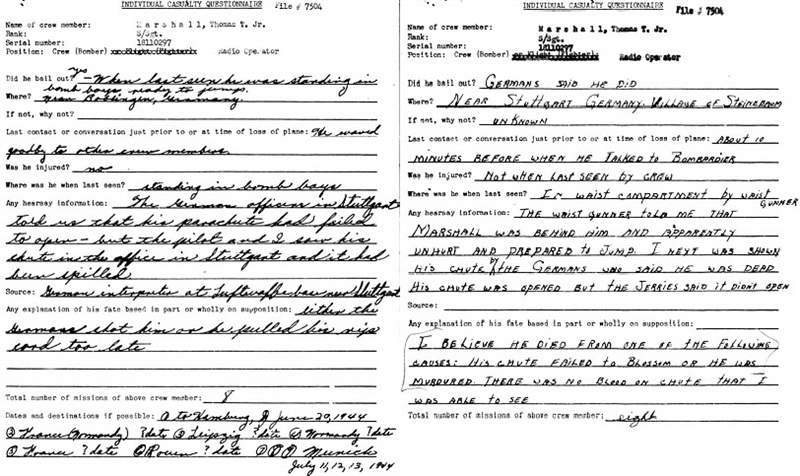 INDIVIDUAL CASUALTY QUESTIONNAIRE File # 7504
Name of crew member: Marshall, Thomas T. Jr.
Rank: S/Sgt.
Serial number: 18110297
Position: Crew (Bomber) or Flight (Fighter) Radio Operator
Did he bail out? yes - When last seen he was standing in
bomb bays, ready to jump.
Where? near Boblingen, Germany.
If not, why not?
Last contact or conversation just prior to or at time of loss of plane: He waved
goodby to other crew members.
Was he injured? no
Where was he when last seen? standing in bomb bays
Any hearsay information: The German officers in Stuttgart
told us that his parachute had failed
to open - but the pilot and I saw his
chute in the office in Stuttgart and it had
been spilled
Source: German interpreter at Luftwaffe base near Stuttgart
Any explanation of his fate based in part or wholly on supposition: either the
Germans shot him or he pulled his rip
cord too late
Total number of missions of above crew member: 8
Dates and destinations if possible: to Hamburg, June 20, 1944
France (Normandy) ? date Leipzig ? date Normandy ? date
France ? date Rouen ? date Munich
July 11, 12, 13, 1944
INDIVIDUAL CASUALTY QUESTIONNAIRE File # 7504
Name of crew member: Marshall, Thomas T. Jr.
Rank: S/Sgt.
Serial number: 18110297
Position: Crew (Bomber) or Flight (Fighter) Radio Operator
Did he bail out? GERMANS SAID HE DID
Where? NEAR STUTTGART GERMANY. VILLAGE OF
If not, why not? UNKNOWN
Last contact or conversation just prior to or at time of loss of plane: ABOUT 10
MINUTES BEFORE WHEN HE TALKED TO BOMBARDIER
Was he injured? NOT WHEN LAST SEEN BY CREW
Where was he when last seen? IN WAIST COMPARTMENT BY WAIST GUNNER
Any hearsay information: THE WAIST GUNNER TOLD ME THAT
MARSHALL WAS BEHIND HIM AND APPARENTLY
UNHURT AND PREPARED TO JUMP. I NEXT WAS SHOWN
HIS CHUTE BY THE GERMANS WHO SAID HE WAS DEAD
HIS CHUTE WAS OPENED BUT THE JERRIES SAID IT DIDNT OPEN
Source:
Any explanation of his fate based in part or wholly on supposition:
I BELIEVE HE DIED FROM ONE OF THE FOLLOWING
CAUSES: HIS CHUTE FAILED TO BLOSSOM OR HE WAS
MURDURED. THERE WAS NO BLOOD ON CHUTE THAT I
WAS ABLE TO SEE
Total number of missions of above crew member: eight